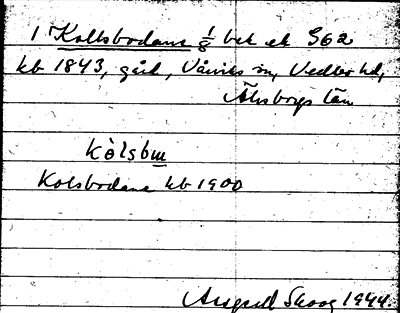 1 Kollsbodane 1/8 bek ek 362
kb 1843, gård, Vånvks sn, Vedbo hd,
Älvsborgs län
kòlsbm
Kolsbodane kb 1900
Assgrid Skoog 1944.